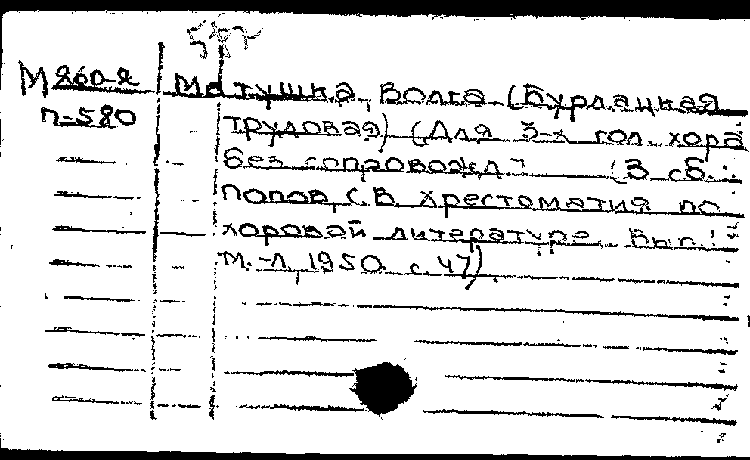 587
М 860-2 Матушка Волга (Бурлацкая
П-580 трудовая) (Для 3-х гол. хора
без сопровожд.) (В сб.:
Попов, С.В. Хрестоматия по
хоровой литературе. Вып.!
М.-Л., 1950. с. 47)